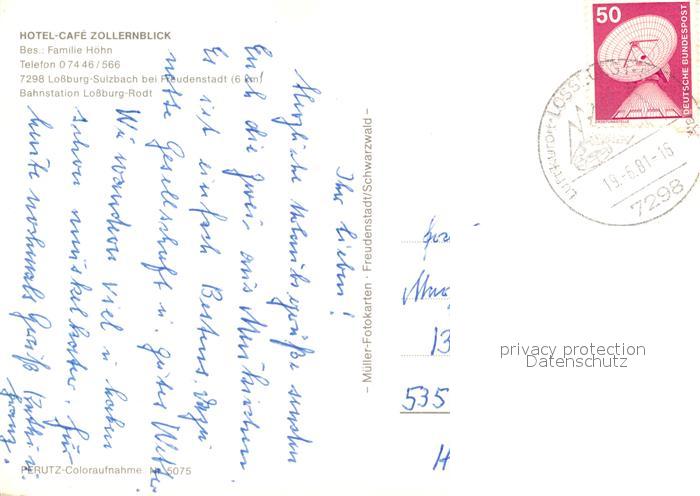 HOTEL-CAFÉ ZOLLERNBLICK
Bes.: Familie Höhn
Telefon 0 74 46 / 566
7298 Loßburg-Sulzbach bei Freudenstadt (6 km)
Bahnstation Loßburg-Rodt
Ihr Lieben!
Herzliche Urlaubsgrüße senden
Euch die zwei aus
Es ist einfach Bestens. Dazu
nette Gesellschaft u. gutes Wetter
Wir wandern viel u. haben
schon Muskelkater. Für
heute nochmals Gruß
PERUTZ-Coloraufnahme Nr. 5075
– Müller-Fotokarten · Freudenstadt/Schwarzwald –
50
DEUTSCHE BUNDESPOST
LUFTKURORT
19.-6.81-16
7298
13
535
H
privacy protection
Datenschutz